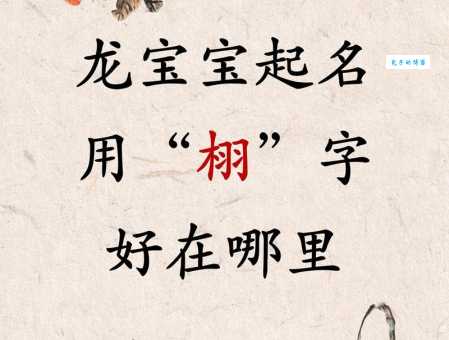 龙宝宝起名
用“栩”字
好在哪里